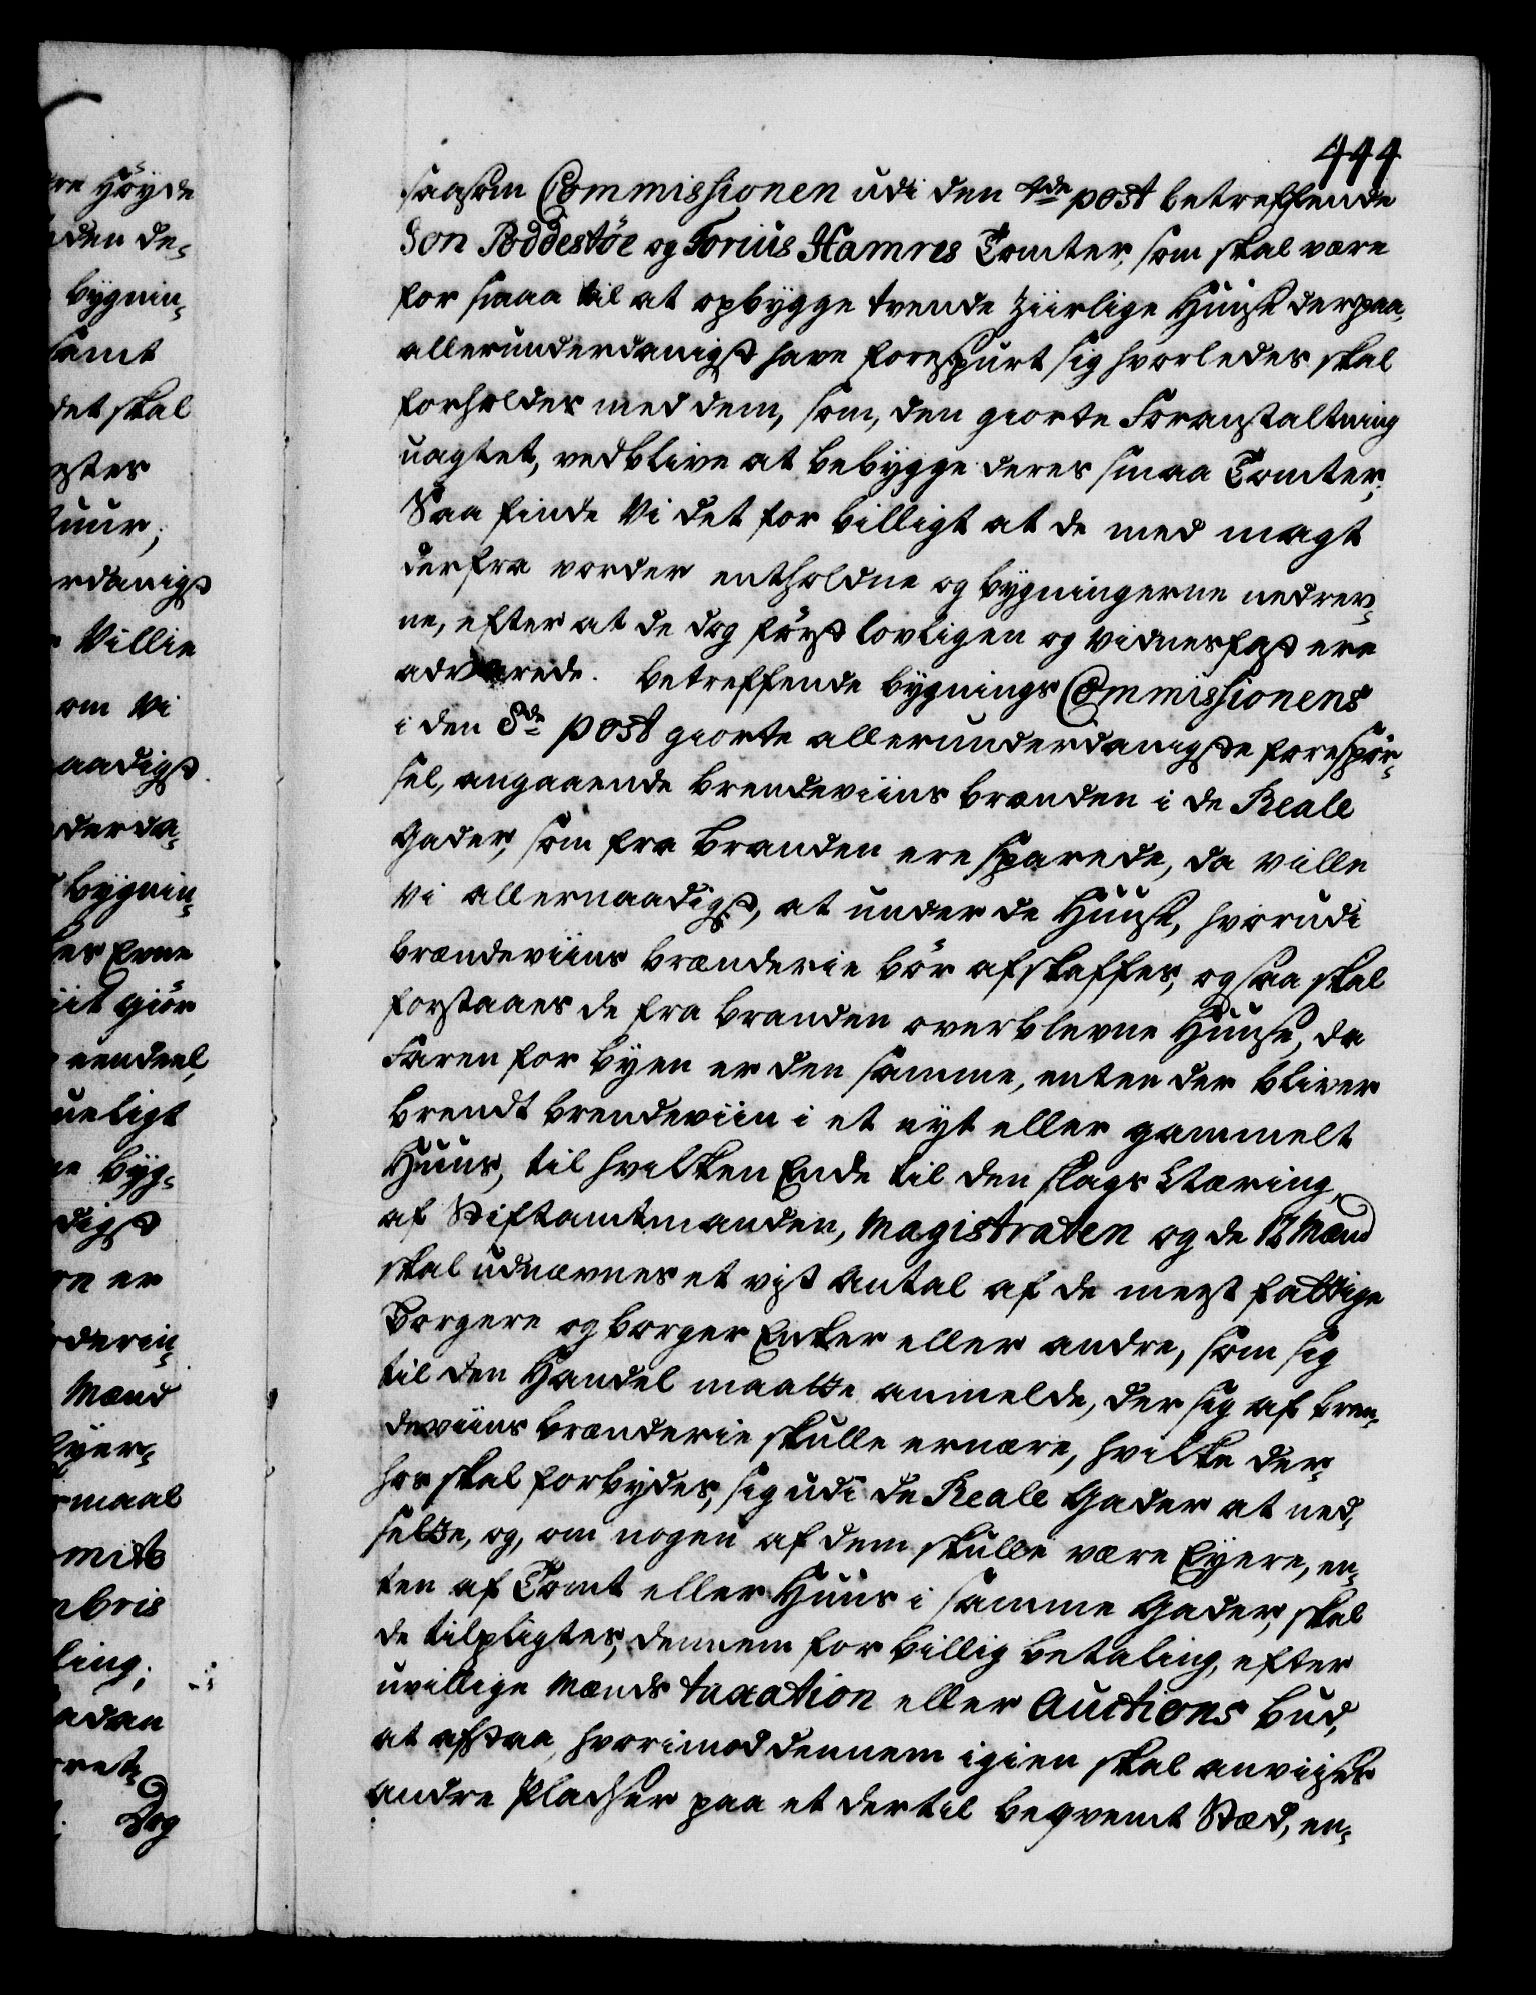 444
saasom Commissionen udi den 4de post betreffende
Son Boddestöe og Torius Hamres Tomter, som skal være
for smaa til at opbygge trende Ziirlige Huuse derpaa,
allerunderdanigst have forespurt sig hvorledes skal
forholdes med dem, som, den giorte Foranstaltning
uagtet, vedblive at bebygge deres smaa Tomter;
Saa finde Vi det for billigt at de med magt
derfra vorder entholdne og bygningerne nedrev-
ne, efter at de dog först lovligen og vidnesfast ere
advarede. betreffende bygnings Commissionens
i den 8de post giorte allerunderdanigste forespör-
sel, angaaende brendeviins brænden i de Reale
Gader, som fra branden ere sparede, da ville
Vi allernaadigst, at under de Huuse, hvorudi
brændeviins brænderie bör afskaffes, ogsaa skal
forstaaes de fra branden overblevne Huuse, da
Faren for byen er den samme, enten der bliver
brendt brendeviin i et nyt eller gammelt
Huus, til hvilken Ende til den slags Næring,
af Stiftamtmanden, Magistraten og de 12 Mænd
skal udnævnes et vist Antal af de meest fattige
Borgere og borger Enker eller andre, som sig
til den Handel maatte anmelde, der sig af bren-
deviins brænderie skulle ernære, hvilke der-
hos skal forbydes, sig udi de Reale Gader at ned-
sette, og, om nogen af dem skulle være Eyere, en-
ten af Tomt eller Huus i samme Gader, skal
de tilpligtes, dennem for billig betaling, efter
uvillige Mænds taxation eller Auctions bud,
at afstaa, hvorimod dennem igien skal anviises
andre Pladser paa et dertil beqvemt Stæd, en-
re Höyde
den de-
bygnin-
samt
det skal
uur;
rdanigst
Villie
om Vi
aadigst
derda-
bygnin-
er Evne
iit giör
eendeel,
ueligt
byg-
digst
er
derin-
Mænd
maal
mitt
bris
ling;
adan
rest-
Dog